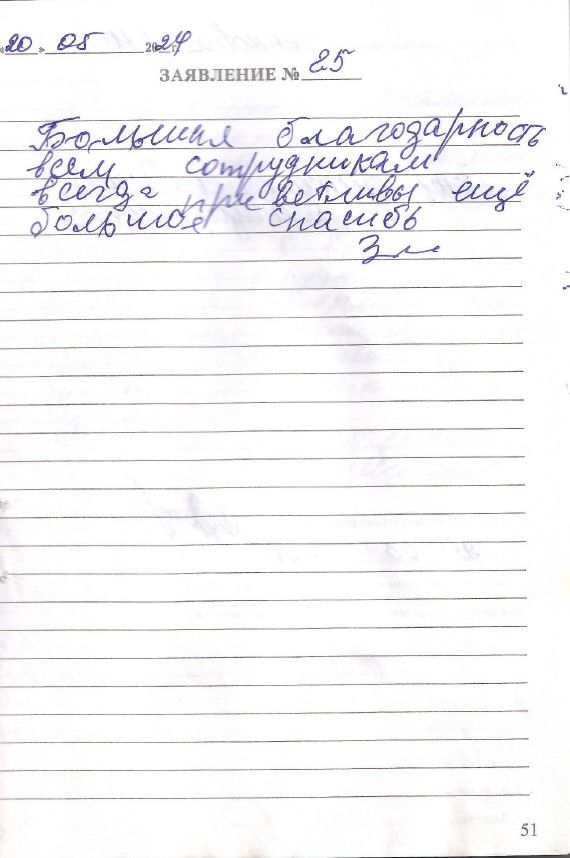 «20» 05 2024 г.
ЗАЯВЛЕНИЕ № 25
Большая благодарность
всем сотрудникам
всегда приветливы ещё
большое спасибо
51